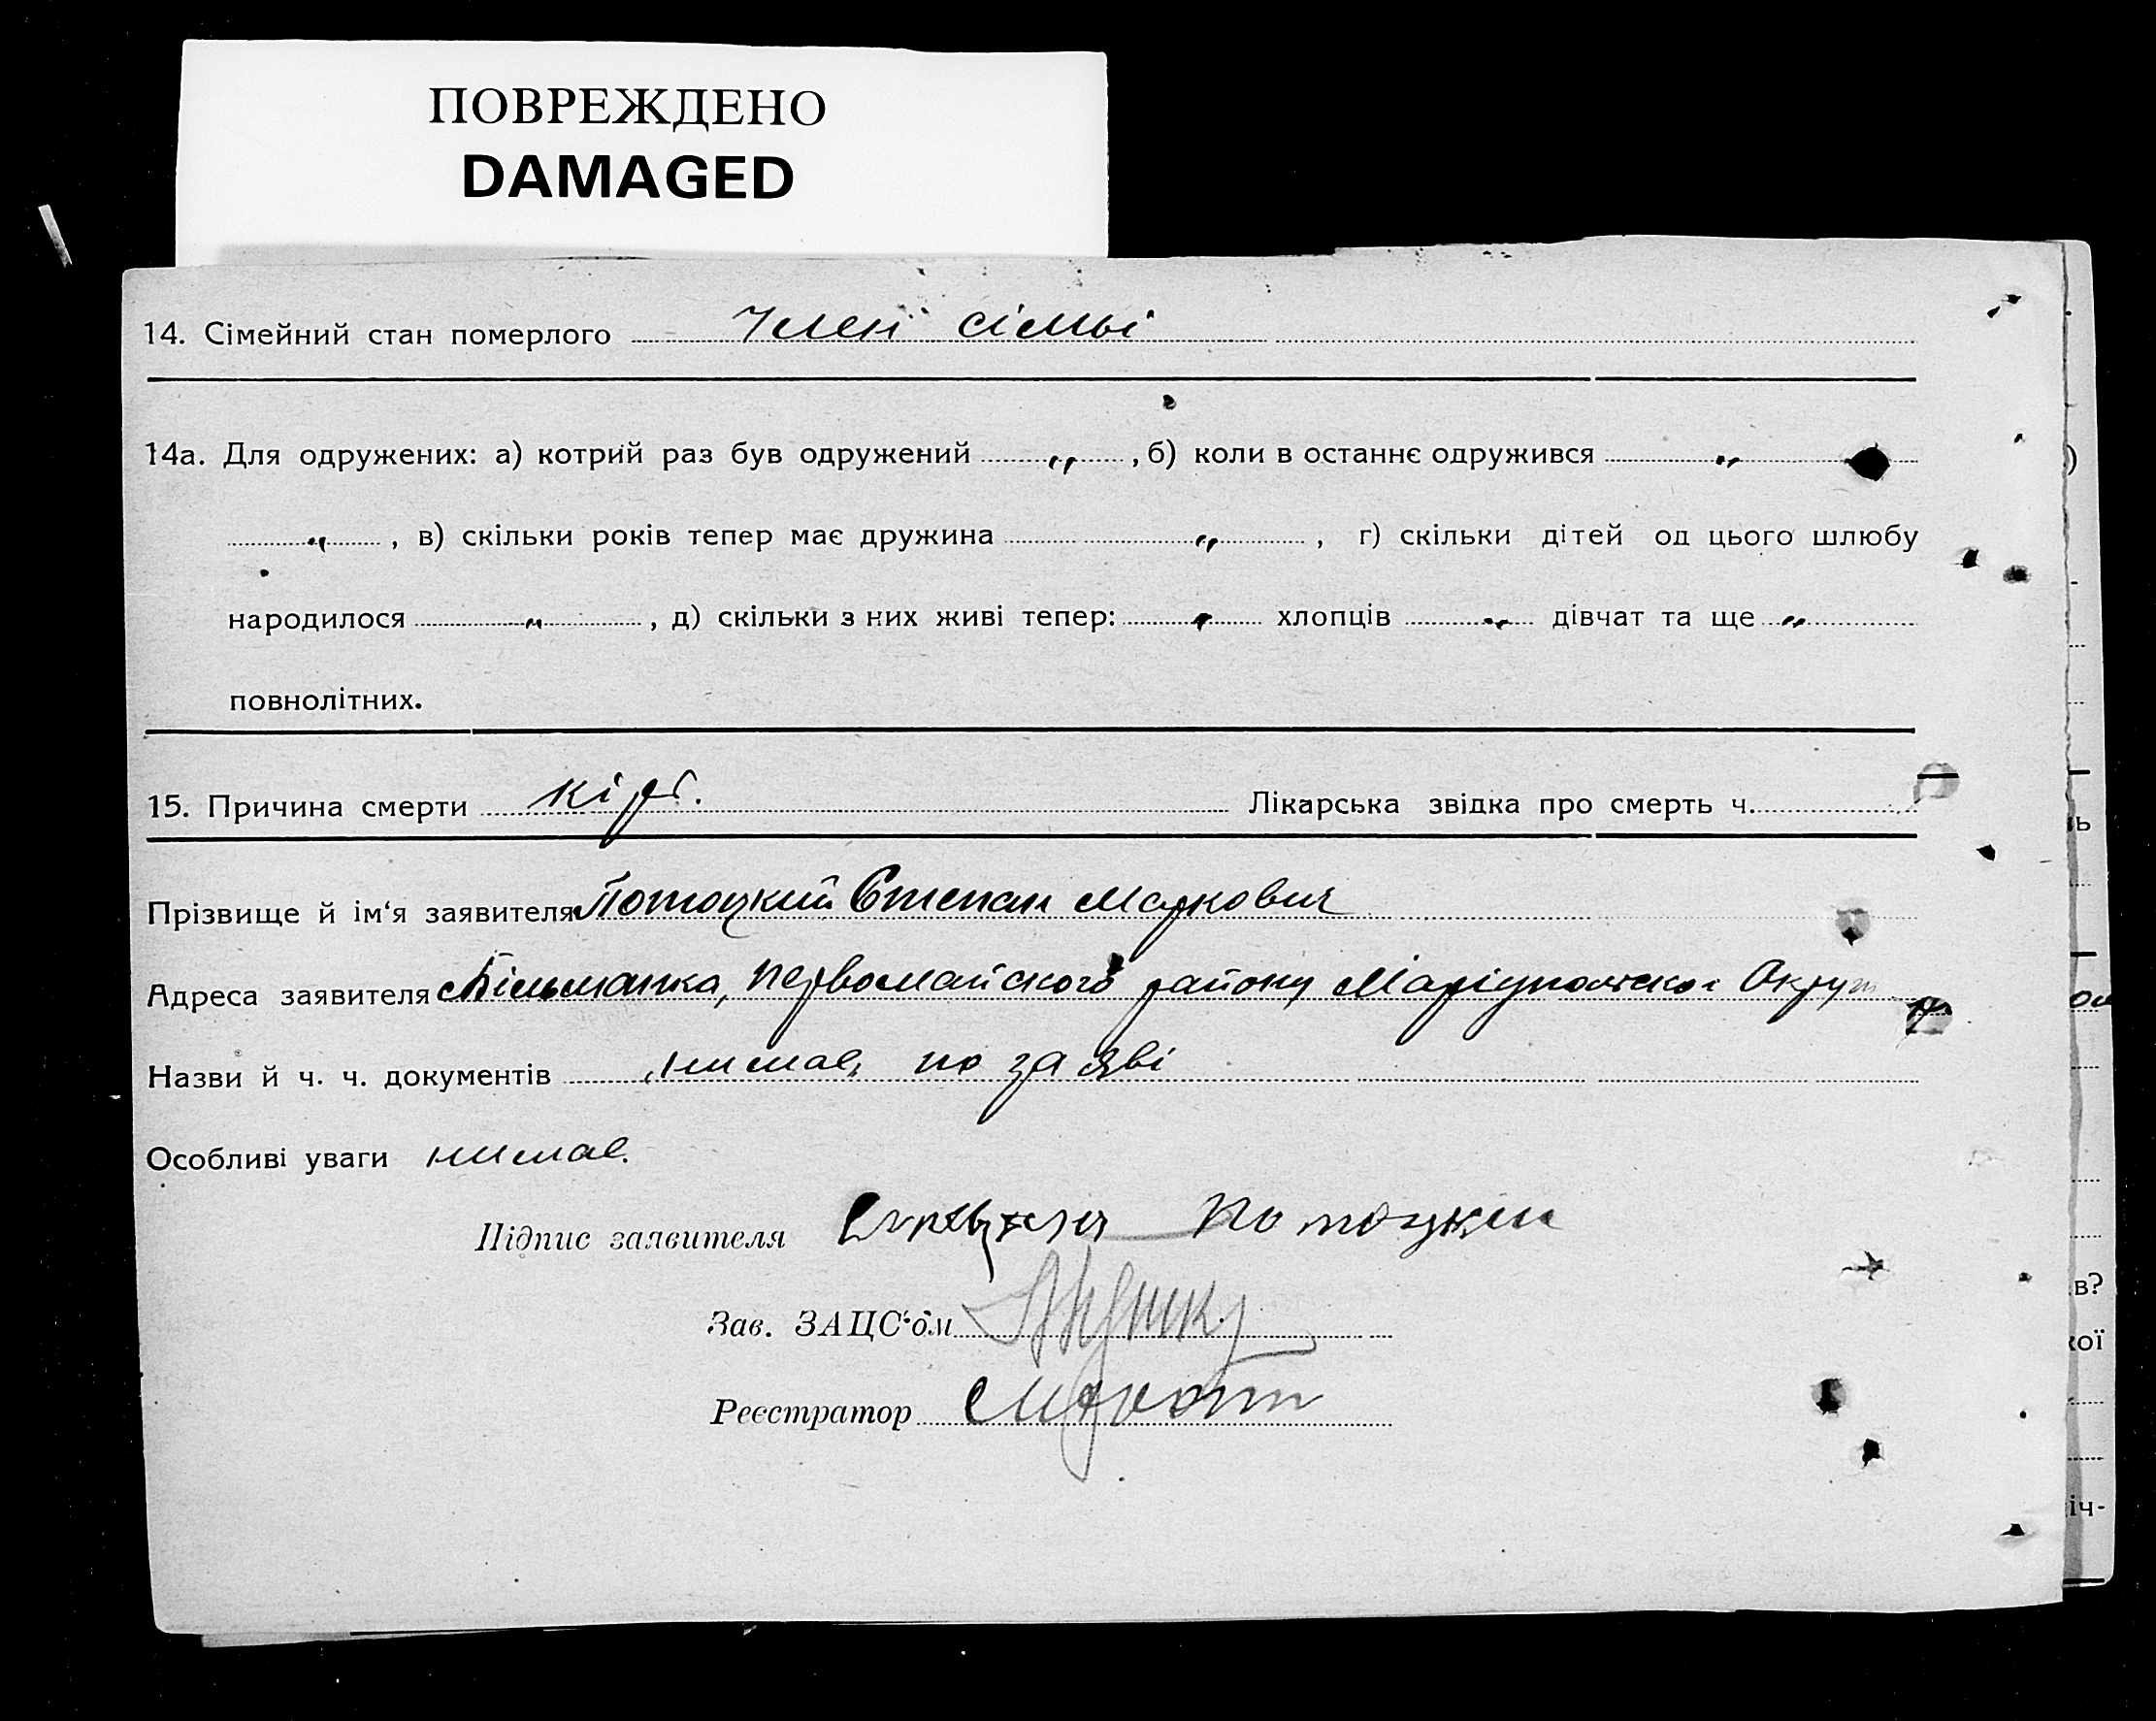 ПОВРЕЖДЕНО
DAMAGED
14. Сімейний стан померлого член сімьі
14а. Для одружених: а) котрий раз був одружений „ , б) коли в останнє одружився „
„ , в) скільки років тепер має дружина „ , г) скільки дітей од цього шлюбу
народилося „ , д) скільки з них живі тепер: „ хлопців „ дівчат та ще „
повнолітних.
15. Причина смерти кір. Лікарська звідка про смерть ч.
Прізвище й ім‘я заявителя Потоцкий Степан Маркович
Адреса заявителя с Більманка, Первомайского району Маріупольскоі Округи
Назви й ч. ч. документів нимає, по заяві
Особливі уваги нимає.
Підпис заявителя Потоцкий
Зав. ЗАЦС‘ом
Реєстратор
ь
в?
кої
іч-